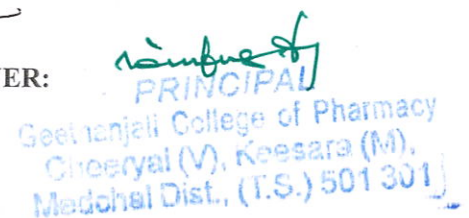 VER:
PRINCIPAL
Geethanjali College of Pharmacy
Cheeryal (V), Keesara (M),
Medchal Dist., (T.S.) 501 301